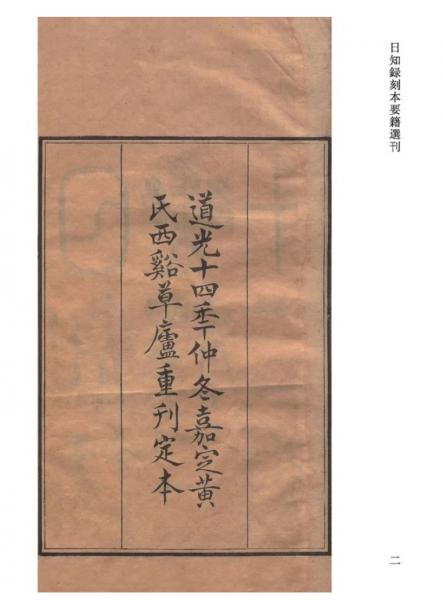 日知録刻本要籍選刊
道光十四秊仲冬嘉定黃
氏西谿草廬重刊定本
二